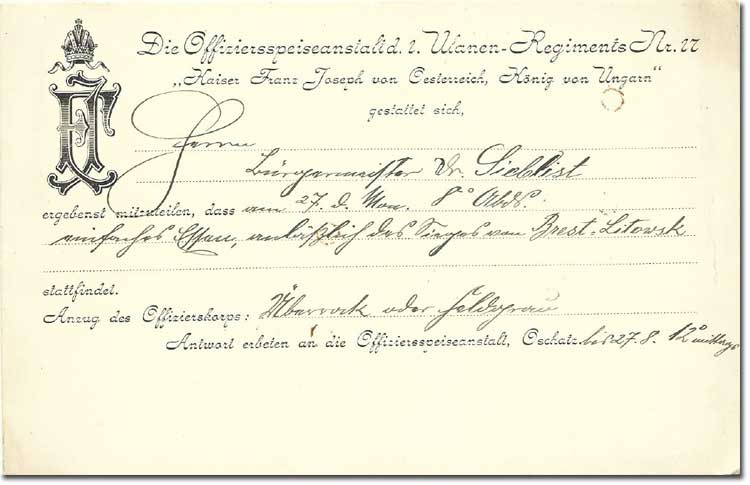 Die Offiziersspeiseanstalt d. 1. Ulanen-Regiments Nr. 17
„Kaiser Franz Joseph von Oesterreich, König von Ungarn“
gestattet sich,
Herrn
Bürgermeister Dr. Sieblist
ergebenst mitzuteilen, dass am 27. d. Mon. 8° Abds.
einfaches Essen, anläßlich des Sieges von Brest-Litowsk
stattfindet.
Anzug des Offizierskorps: Überrock oder feldgrau
Antwort erbeten an die Offiziersspeiseanstalt, Oschatz. bis 27. 8. 12° mittags